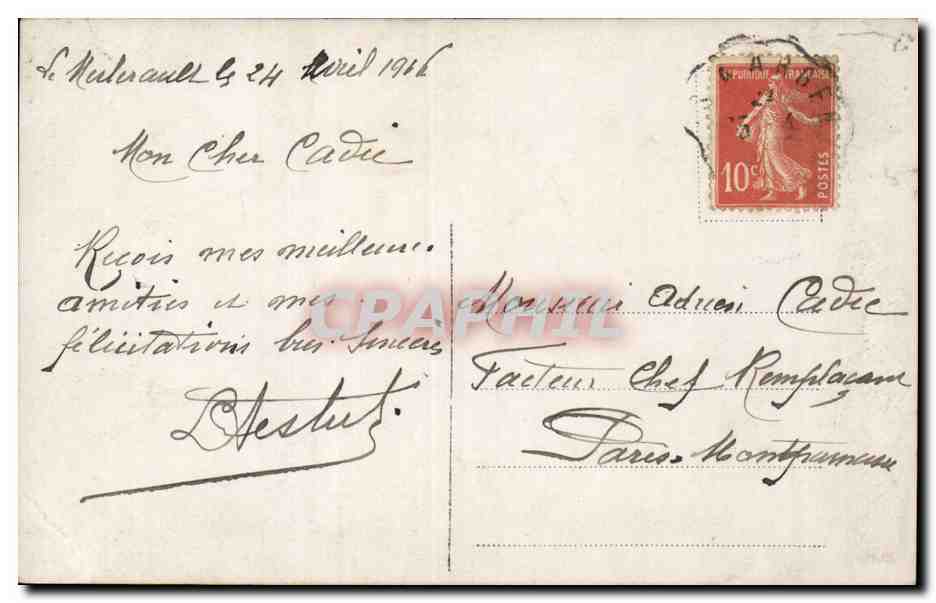 Le Merlerault le 24 Avril 1916
Mon Cher Cadic
Reçois mes meilleures
amitiés et mes
félicitations très sincères
LTestut
REPUBLIQUE FRANÇAISE
10c
POSTES
Monsieur Adrien Cadic
Facteur Chef Remplaçant
Paris-Montparnasse
CPAPHIL